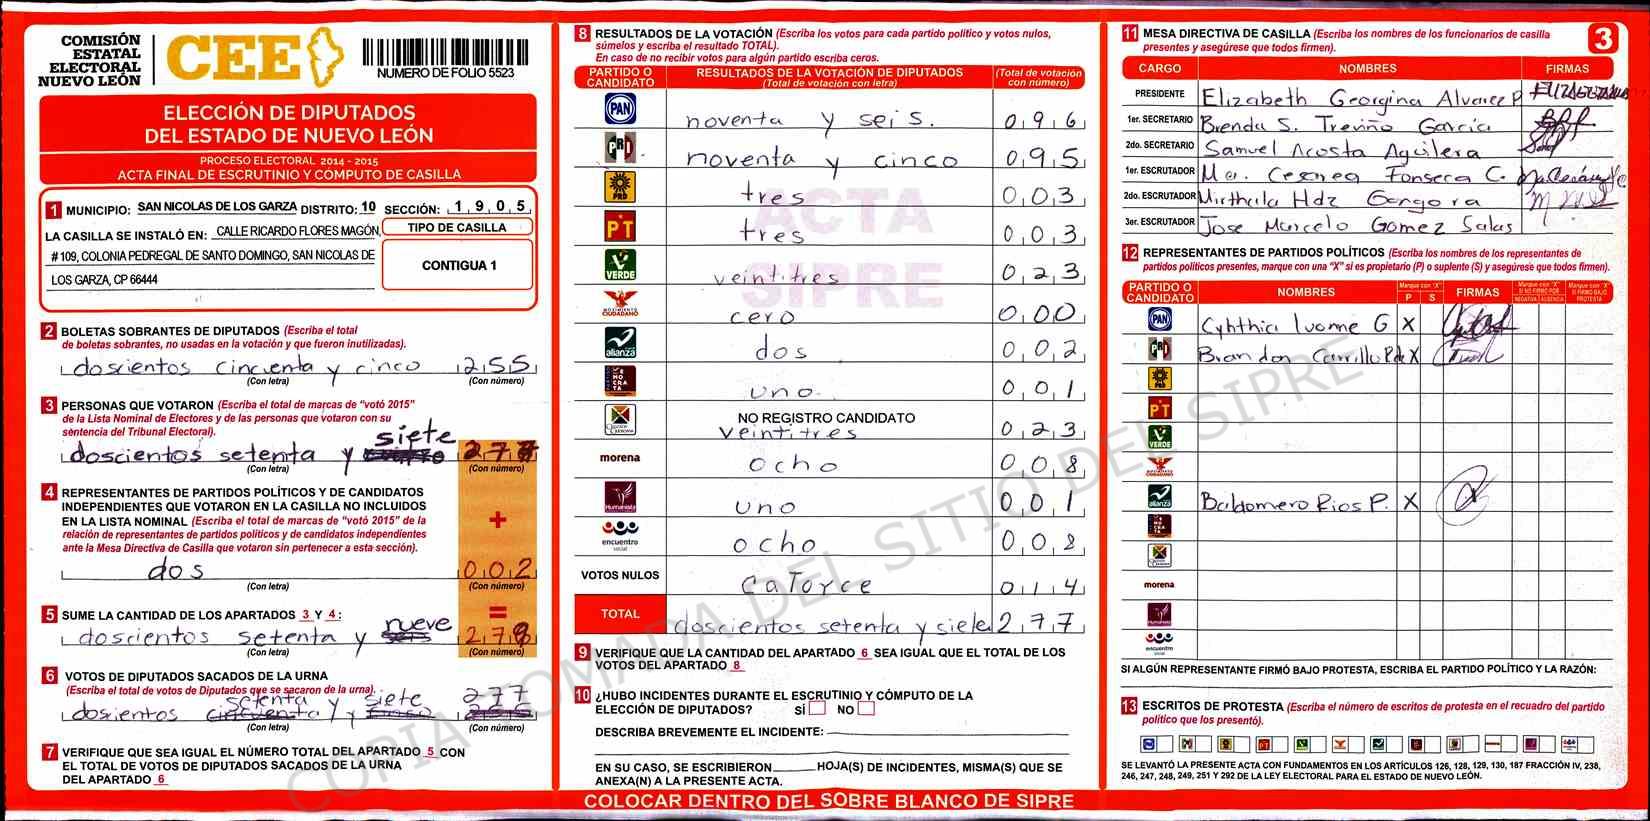 COMISIÓN
ESTATAL
ELECTORAL
NUEVO LEÓN
CEE
NUMERO DE FOLIO 5523
ELECCIÓN DE DIPUTADOS
DEL ESTADO DE NUEVO LEÓN
PROCESO ELECTORAL 2014 - 2015
ACTA FINAL DE ESCRUTINIO Y CÓMPUTO DE CASILLA
1 MUNICIPIO: SAN NICOLAS DE LOS GARZA DISTRITO: 10 SECCIÓN: 1905
LA CASILLA SE INSTALÓ EN: CALLE RICARDO FLORES MAGÓN,
#109, COLONIA PEDREGAL DE SANTO DOMINGO, SAN NICOLAS DE
LOS GARZA, CP 66444
TIPO DE CASILLA
CONTIGUA 1
2 BOLETAS SOBRANTES DE DIPUTADOS (Escriba el total
de boletas sobrantes, no usadas en la votación y que fueron inutilizadas).
doscientos cincuenta y cinco 255
(Con letra) (Con número)
3 PERSONAS QUE VOTARON (Escriba el total de marcas de "votó 2015"
de la Lista Nominal de Electores y de las personas que votaron con su
sentencia del Tribunal Electoral).
doscientos setenta y siete 277
(Con letra) (Con número)
4 REPRESENTANTES DE PARTIDOS POLÍTICOS Y DE CANDIDATOS
INDEPENDIENTES QUE VOTARON EN LA CASILLA NO INCLUIDOS
EN LA LISTA NOMINAL (Escriba el total de marcas de "votó 2015" de la
relación de representantes de partidos políticos y de candidatos independientes
ante la Mesa Directiva de Casilla que votaron sin pertenecer a esta sección).
+
dos 002
(Con letra) (Con número)
5 SUME LA CANTIDAD DE LOS APARTADOS 3 Y 4: =
doscientos setenta y nueve 279
(Con letra) (Con número)
6 VOTOS DE DIPUTADOS SACADOS DE LA URNA
(Escriba el total de votos de Diputados que se sacaron de la urna).
dosientos setenta y siete 277
(Con letra) (Con número)
7 VERIFIQUE QUE SEA IGUAL EL NÚMERO TOTAL DEL APARTADO 5 CON
EL TOTAL DE VOTOS DE DIPUTADOS SACADOS DE LA URNA
DEL APARTADO 6
8 RESULTADOS DE LA VOTACIÓN (Escriba los votos para cada partido político y votos nulos,
súmelos y escriba el resultado TOTAL).
En caso de no recibir votos para algún partido escriba ceros.
PARTIDO O CANDIDATO RESULTADOS DE LA VOTACIÓN DE DIPUTADOS (Total de votación con letra) (Total de votación con número)
PAN noventa y seis. 096
PRI noventa y cinco 095
PRD tres 003
PT tres 003
VERDE veintitres 023
MOVIMIENTO CIUDADANO cero 000
alianza dos 002
DEMOCRATA uno 001
NO REGISTRO CANDIDATO
veintitres 023
morena ocho 008
Humanista uno 001
encuentro social ocho 008
VOTOS NULOS catorce 014
TOTAL doscientos setenta y siete 277
ACTA
SIPRE
9 VERIFIQUE QUE LA CANTIDAD DEL APARTADO 6 SEA IGUAL QUE EL TOTAL DE LOS
VOTOS DEL APARTADO 8
10 ¿HUBO INCIDENTES DURANTE EL ESCRUTINIO Y CÓMPUTO DE LA
ELECCIÓN DE DIPUTADOS? SÍ NO
DESCRIBA BREVEMENTE EL INCIDENTE:
EN SU CASO, SE ESCRIBIERON HOJA(S) DE INCIDENTES, MISMA(S) QUE SE
ANEXA(N) A LA PRESENTE ACTA.
COLOCAR DENTRO DEL SOBRE BLANCO DE SIPRE
11 MESA DIRECTIVA DE CASILLA (Escriba los nombres de los funcionarios de casilla
presentes y asegúrese que todos firmen).
3
CARGO NOMBRES FIRMAS
PRESIDENTE Elizabeth Georgina Alvarez P
1er. SECRETARIO Brenda S. Treviño García
2do. SECRETARIO Samuel Acosta Aguilera
1er. ESCRUTADOR Ma. Fonseca C.
2do. ESCRUTADOR Mirthala Hdz Gongora
3er. ESCRUTADOR Jose Marcelo Gomez Salas
12 REPRESENTANTES DE PARTIDOS POLÍTICOS (Escriba los nombres de los representantes de
partidos políticos presentes, marque con una "X" si es propietario (P) o suplente (S) y asegúrese que todos firmen).
PARTIDO O CANDIDATO NOMBRES Marque con "X" P S FIRMAS Marque con "X" SI NO FIRMÓ POR NEGATIVA AUSENCIA Marque con "X" SI FIRMÓ BAJO PROTESTA
PAN Cynthia Ivonne G X
PRI Brandon Carrillo X
PRD
PT
VERDE
MOVIMIENTO CIUDADANO
alianza Baldomero Rios P. X
morena
Humanista
encuentro social
SI ALGÚN REPRESENTANTE FIRMÓ BAJO PROTESTA, ESCRIBA EL PARTIDO POLÍTICO Y LA RAZÓN:
13 ESCRITOS DE PROTESTA (Escriba el número de escritos de protesta en el recuadro del partido
político que los presentó).
SE LEVANTÓ LA PRESENTE ACTA CON FUNDAMENTOS EN LOS ARTÍCULOS 126, 128, 129, 130, 187 FRACCIÓN IV, 238,
246, 247, 248, 249, 251 Y 292 DE LA LEY ELECTORAL PARA EL ESTADO DE NUEVO LEÓN.
COPIA TOMADA DEL SITIO DEL SIPRE